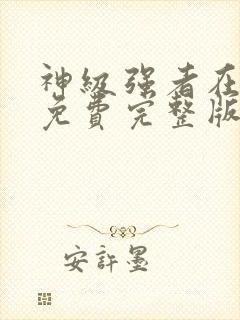 神级强者在
免费完整版
安許墨